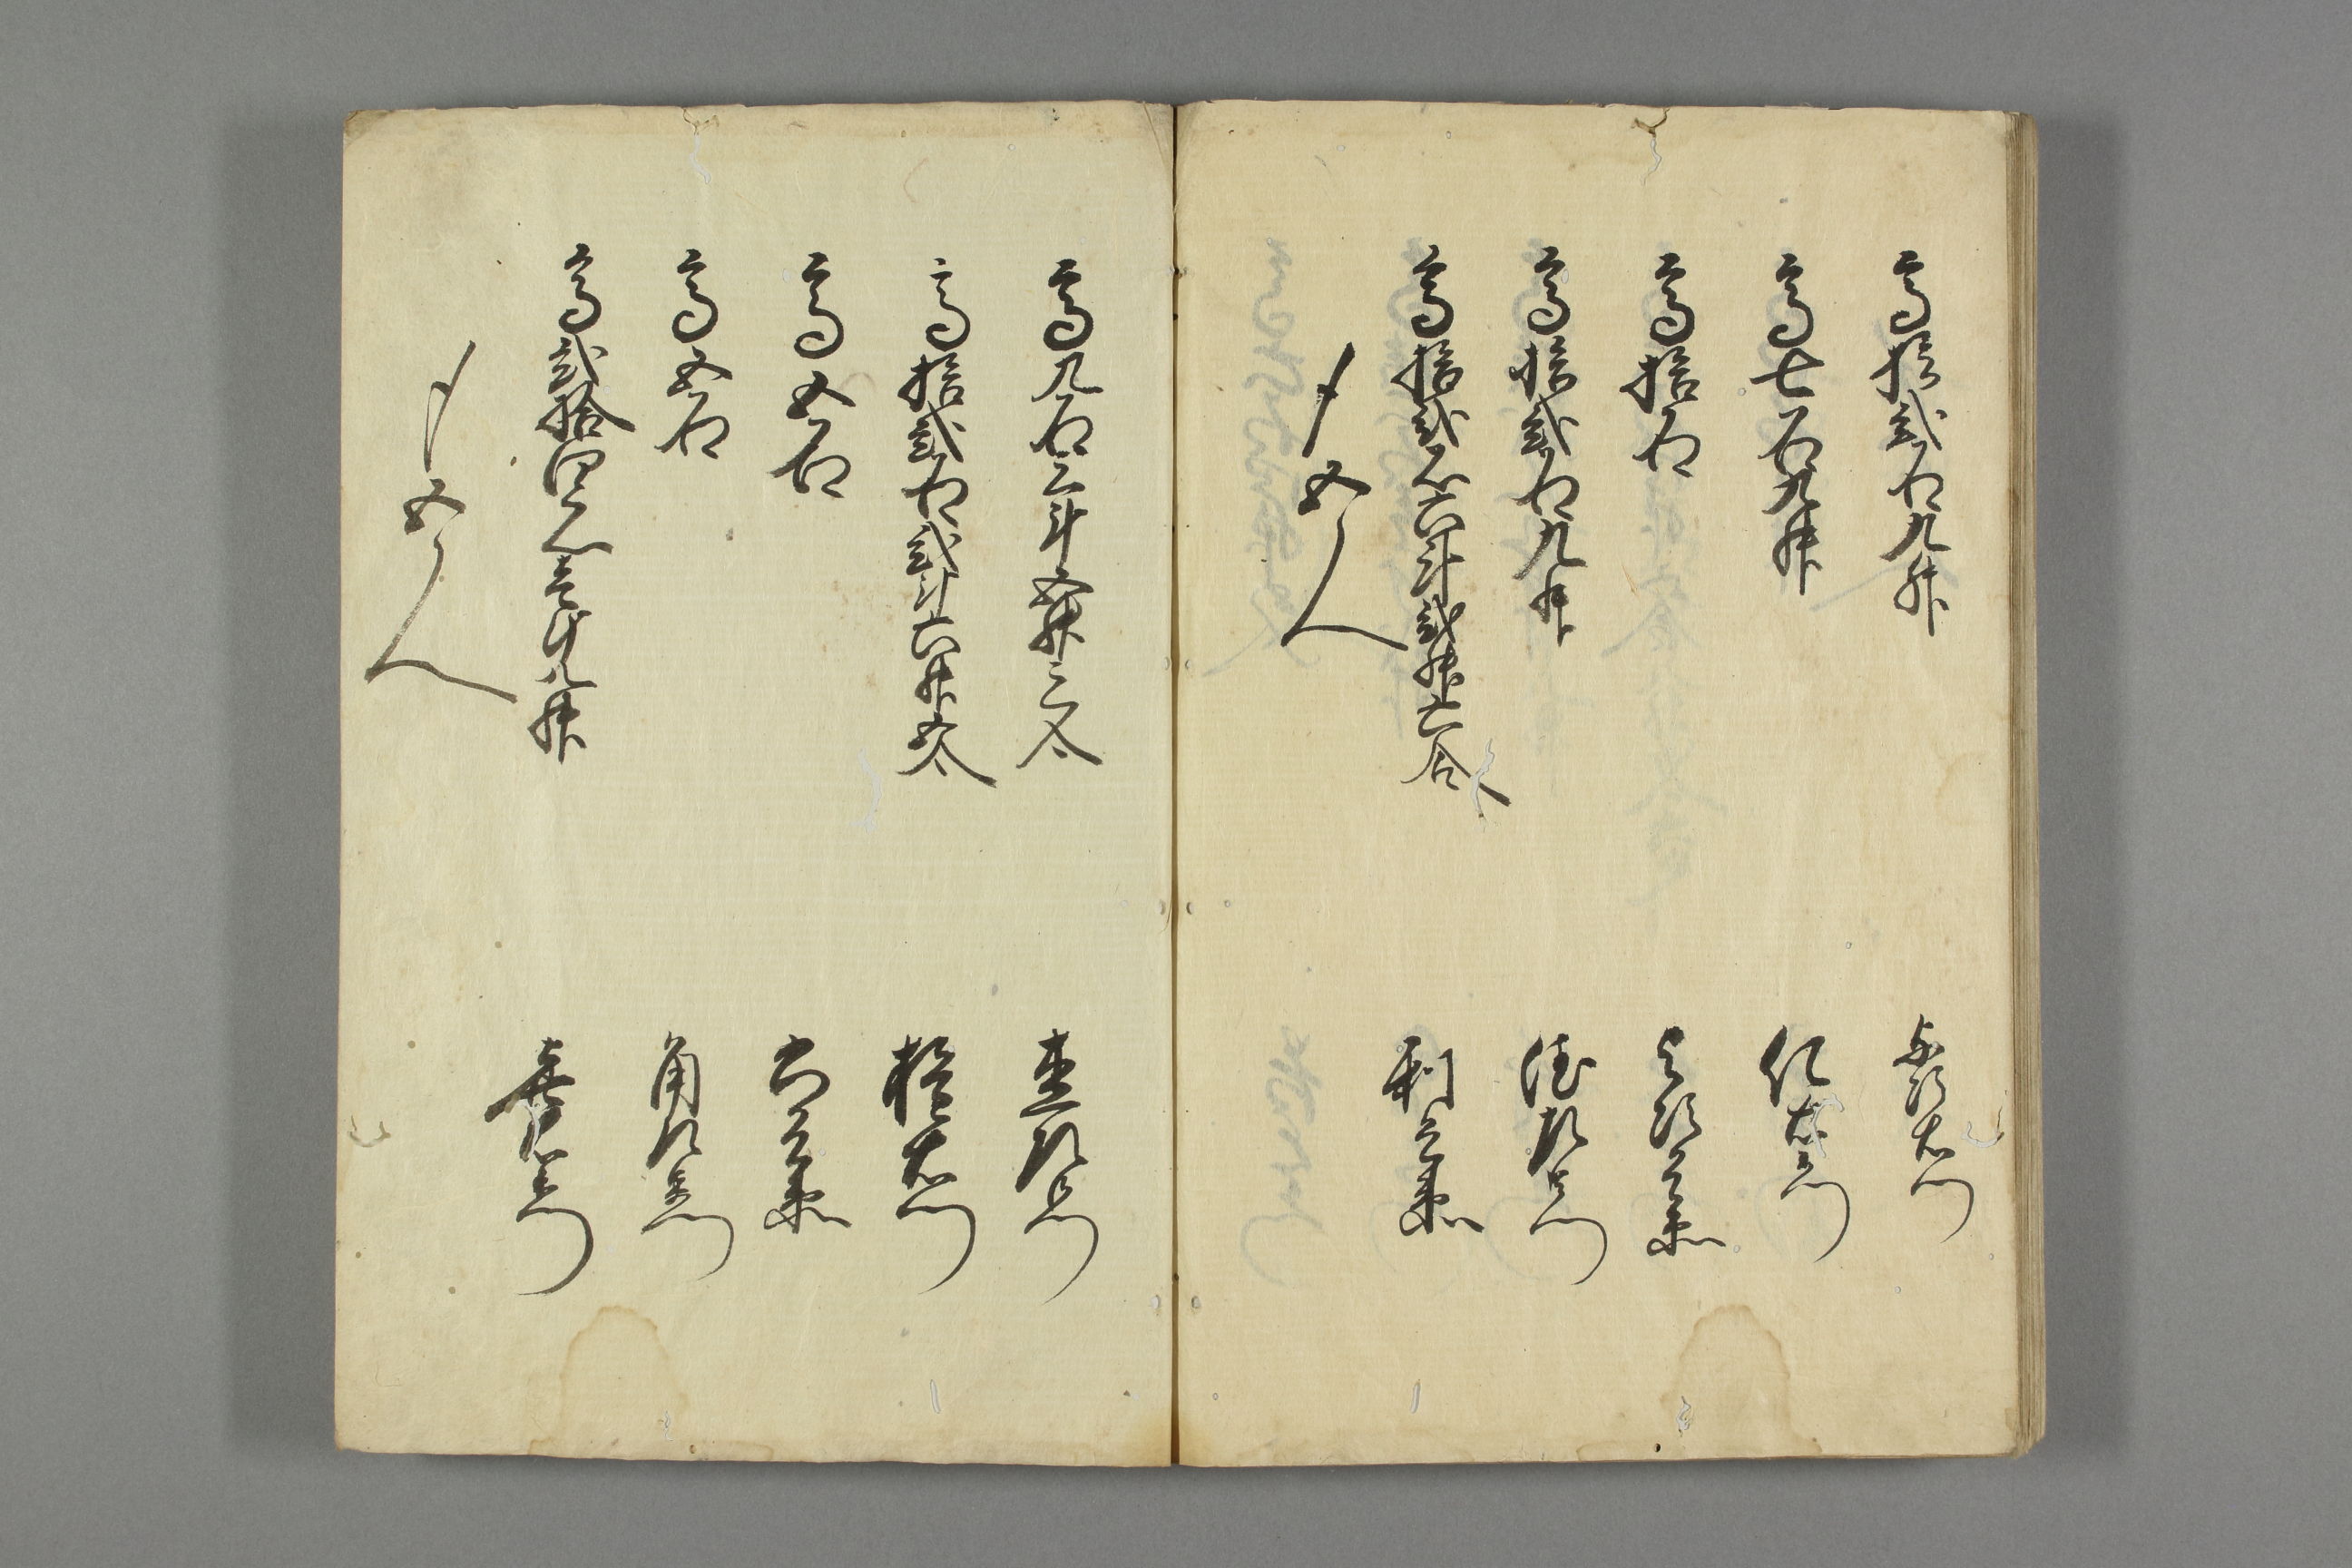 高拾弐石九升
与次右衛門
高七石九升
仁左衛門
高拾石
与次兵衛
高拾弐石九升
徳左衛門
高拾弐石六斗弐升六合
利兵衛
〆五人
高九石三斗五升三合
高拾弐石弐斗六升五合
右衛門
高五石
六兵衛
高五石
角左衛門
高弐拾四石壱斗九升
喜左衛門
〆五人